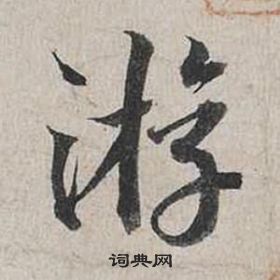 游
词典网